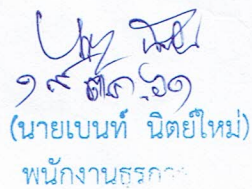 ๑๙ ต.ค. ๖๑
(นายเบนท์ นิตย์ใหม่)
พนักงานธุรการ